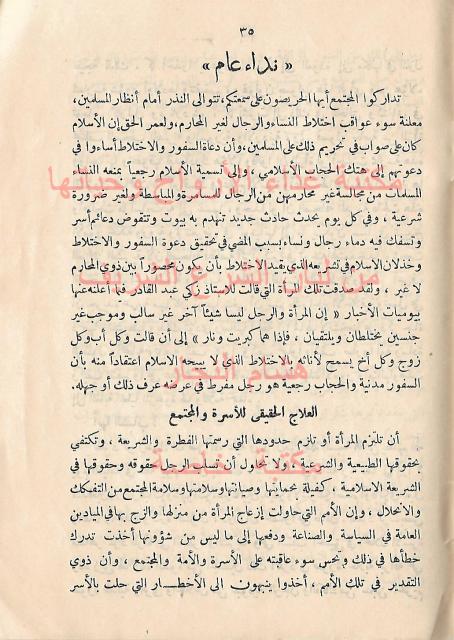 ٣٥
« نداء عام »
تداركوا المجتمع أيها الحريصون على سمعتكم، تتوالى النذر أمام أنظار المسلمين،
معلنة سوء عواقب اختلاط النساء والرجال لغير المحارم، ولعمر الحق إن الأسلام
كان على صواب في تحريم ذلك على المسلمين، وأن دعاة السفور والاختلاط أساءوا في
دعوتهم إلى هتك الحجاب الأسلامي، وإلى تسمية الأسلام رجعياً بمنعه النساء
المسلمات من مجالسة غير محارمهن من الرجال للمسامرة والمباسطة ولغير ضرورة
شرعية ، وفي كل يوم يحدث حادث جديد تنهدم به بيوت وتتقوض دعائم أسر
وتسفك فيه دماء رجال ونساء بسبب المضي في تحقيق دعوة السفور والاختلاط
وخذلان الاسلام في تشريعه الذي يقيد الاختلاط بأن يكون محصوراً بين ذوي المحارم
لا غير ، ولقد صدقت تلك المرأة التي قالت للاستاذ زكي عبد القادر فيما أعلنه عنها
بيوميات الأخبار « إن المرأة والرجل ليسا شيئاً آخر غير سالب وموجب غير
جنسين يختلطان ويلتقيان ، فإذا هما كبريت ونار » إلى أن قالت وكل أب وكل
زوج وكل أخ يسمح لأناثه بالاختلاط الذي لا يبيحه الاسلام اعتقاداً منه بأن
السفور مدنية والحجاب رجعية هو رجل مفرط في عرضه عرف ذلك أو جهله.
العلاج الحقيقى للأسرة والمجتمع
أن تلتزم المرأة أو تلزم حدودها التي رسمتها الفطرة والشريعة ، وتكتفي
بحقوقها الطبيعية والشرعية ، ولا تحاول أن تسلب الرجل حقوقه وحقوقها في
الشريعة الاسلامية ، كفيلة بحمايتها وصيانتها وسلامتها وسلامة المجتمع من التفكك
والانحلال ، وإن الأمم التي حاولت إزعاج المرأة من منزلها والزج بها في الميادين
العامة في السياسة والصناعة ودفعها إلى ما ليس من شؤونها أخذت تدرك
خطأها في ذلك وتحس سوء عاقبته على الأسرة والأمة والمجتمع ، وأن ذوي
التقدير في تلك الأمم ، أخذوا ينبهون الى الأخطار التي حلت بالأسر
مكتبة غذاء الأرواح وحياتها
من لباب الشرع الشريف
هشام النجار
مكتبة خاصة